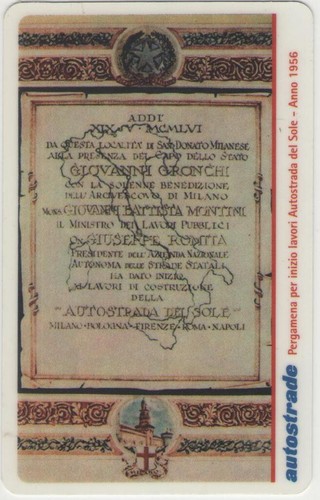 ADDI
XIX·IV·MCMLVI
DA QUESTA LOCALITÀ DI SAN DONATO MILANESE
ALLA PRESENZA DEL CAPO DELLO STATO
GIOVANNI GRONCHI
CON LA SOLENNE BENEDIZIONE
DELL'ARCIVESCOVO DI MILANO
MONS GIOVANNI BATTISTA MONTINI
IL MINISTRO DEI LAVORI PUBBLICI
ON GIUSEPPE ROMITA
PRESIDENTE DELL'AZIENDA NAZIONALE
AUTONOMA DELLE STRADE STATALI
HA DATO INIZIO
AI LAVORI DI COSTRUZIONE
DELLA
"AUTOSTRADA DEL SOLE"
MILANO·BOLOGNA·FIRENZE·ROMA·NAPOLI
autostrade Pergamena per inizio lavori Autostrada del Sole - Anno 1956